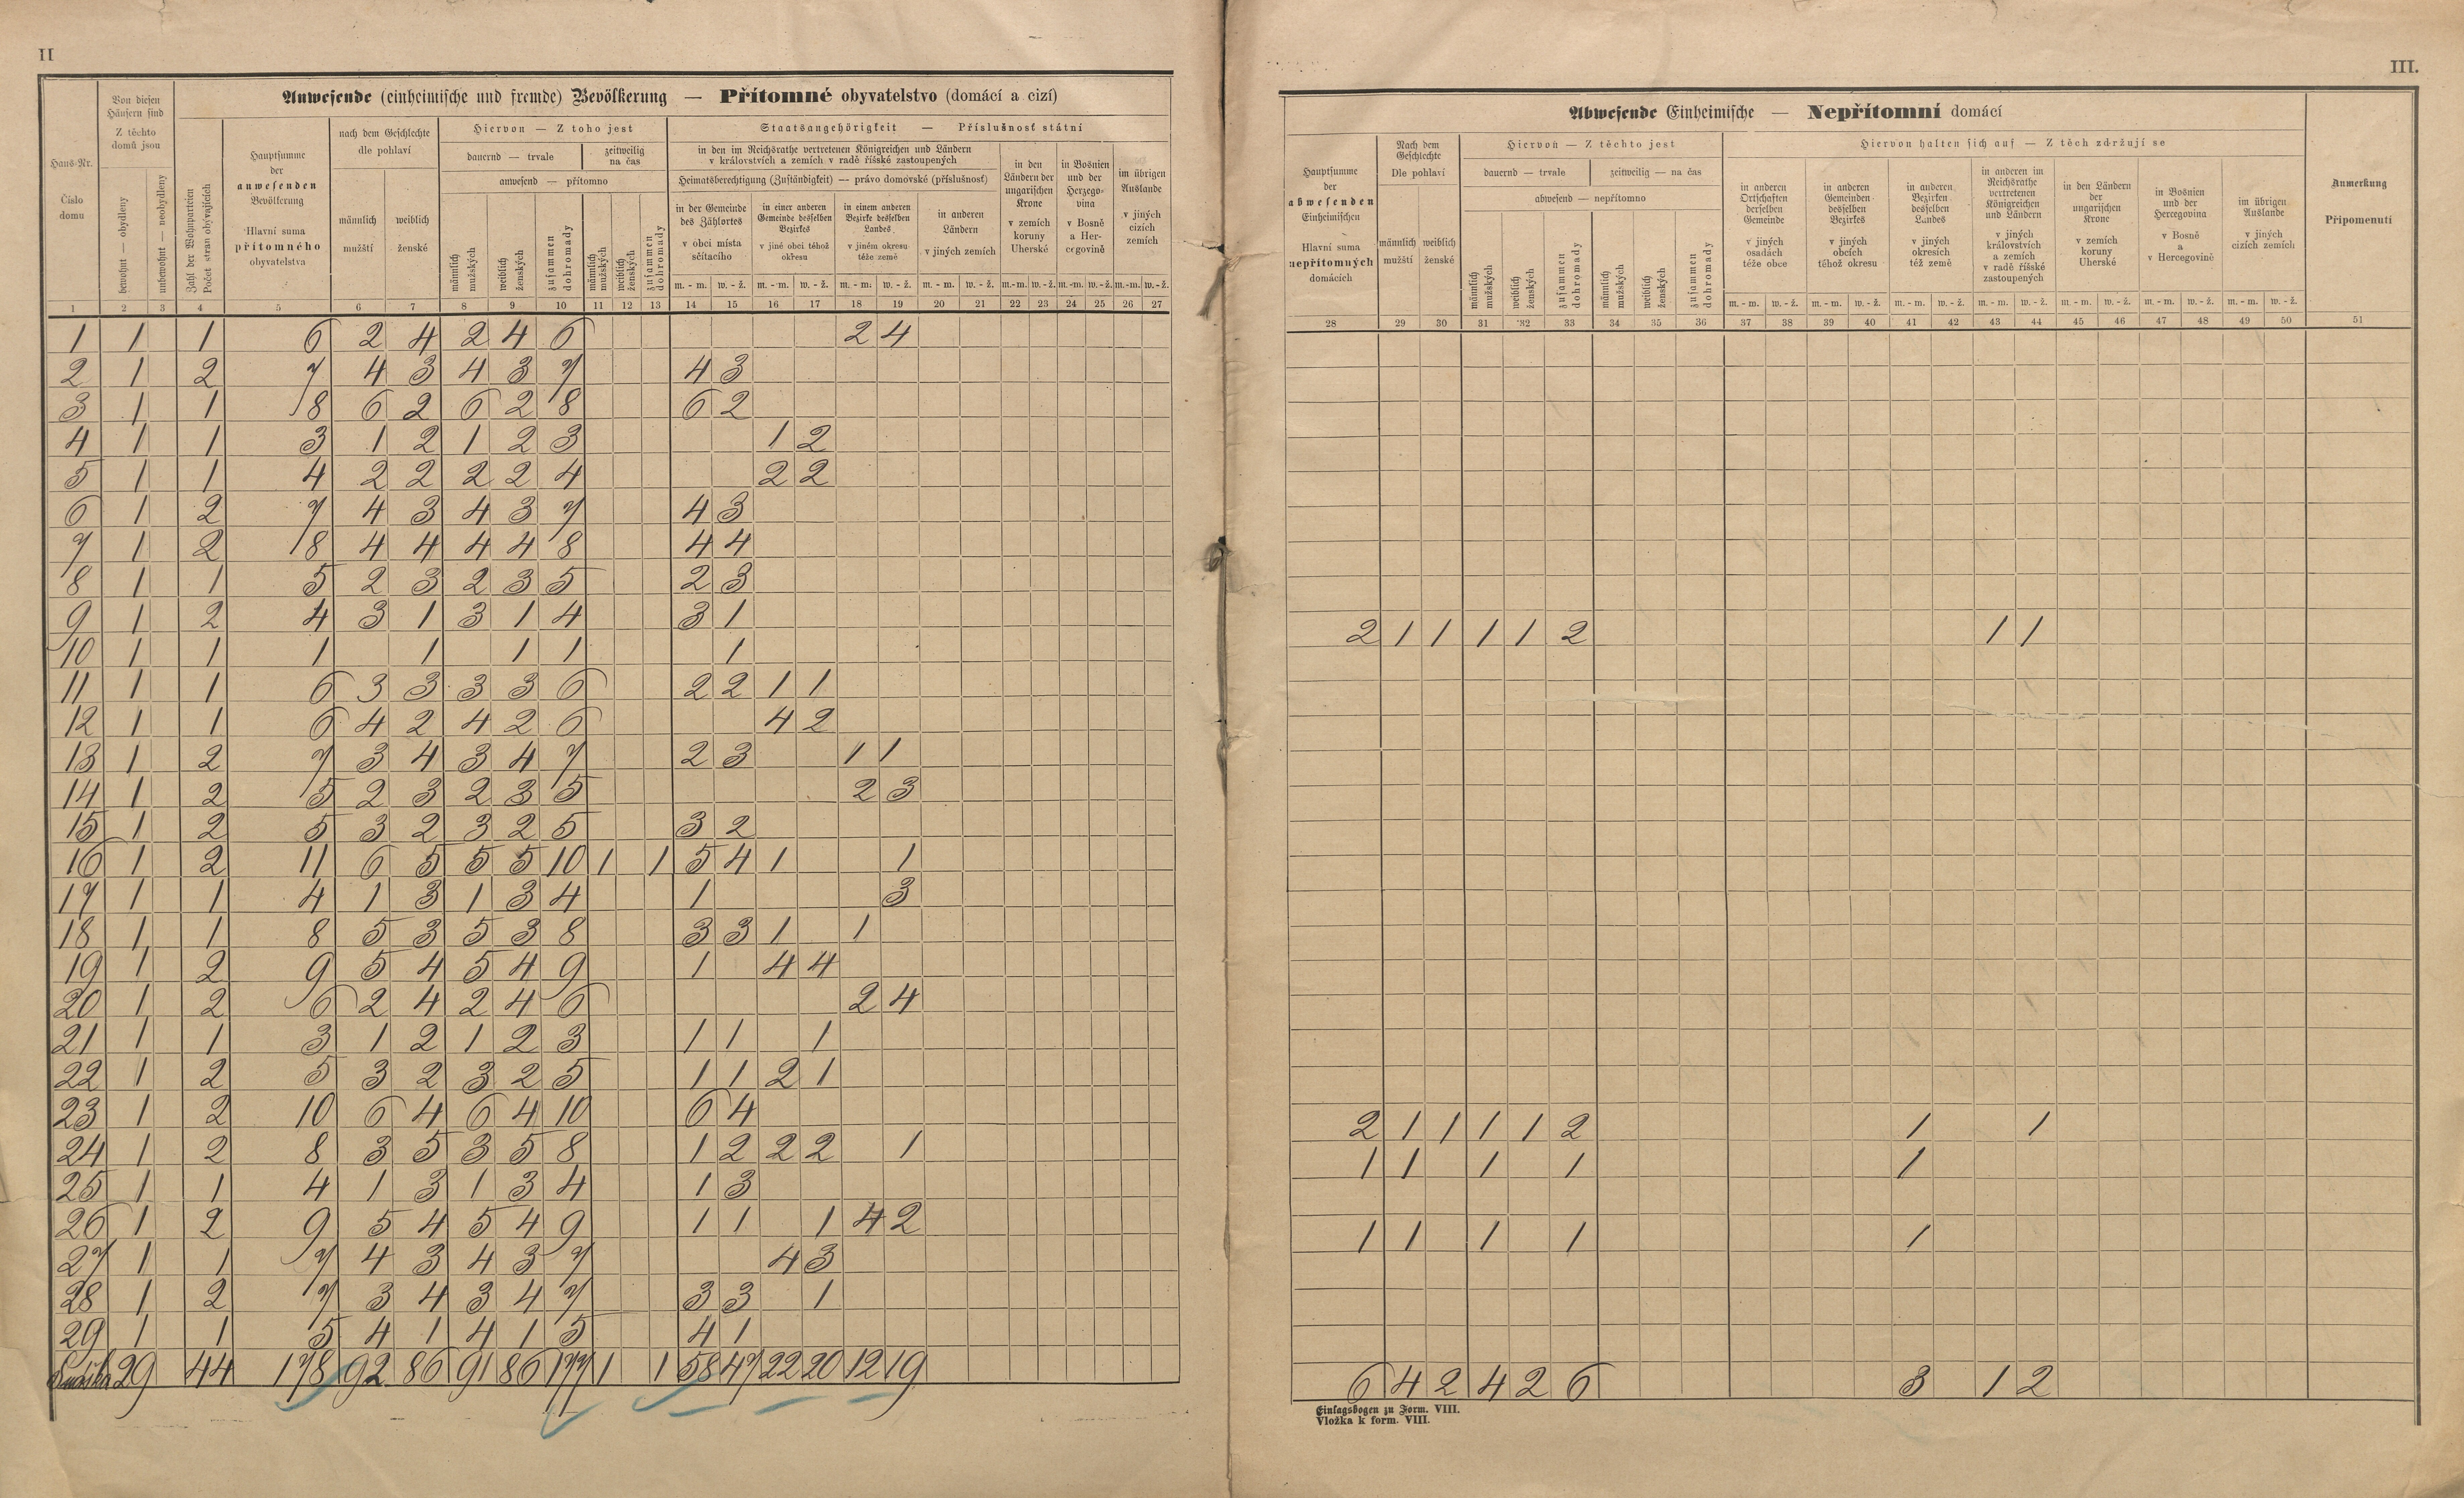 II
III.
Anwesende (einheimische und fremde) Bevölkerung — Přítomné obyvatelstvo (domácí a cizí)
Haus-Nr. Číslo domu
Von diesen Häusern sind Z těchto domů jsou
bewohnt — obydleny
unbewohnt — neobydleny
Zahl der Wohnparteien Počet stran obývajících
Hauptsumme der anwesenden Bevölkerung Hlavní suma přítomného obyvatelstva
nach dem Geschlechte dle pohlaví
männlich mužští
weiblich ženské
Hiervon — Z toho jest
dauernd — trvale
zeitweilig na čas
anwesend — přítomno
männlich mužských
weiblich ženských
zusammen dohromady
männlich mužských
weiblich ženských
zusammen dohromady
Staatsangehörigkeit — Příslušnost státní
in den im Reichsrathe vertretenen Königreichen und Ländern
v královstvích a zemích v radě říšské zastoupených
Heimatsberechtigung (Zuständigkeit) — právo domovské (příslušnost)
in der Gemeinde des Zählortes v obci místa sčítacího
in einer anderen Gemeinde desselben Bezirkes v jiné obci téhož okresu
in einem anderen Bezirke desselben Landes v jiném okresu téže země
in anderen Ländern v jiných zemích
in den Ländern der ungarischen Krone v zemích koruny Uherské
in Bosnien und der Herzegovina v Bosně a Hercegovině
im übrigen Auslande v jiných cizích zemích
m. - m. w. - ž. m. - m. w. - ž. m. - m. w. - ž. m. - m. w. - ž. m.-m. w.-ž. m.-m. w.-ž. m.-m. w.-ž.
1 2 3 4 5 6 7 8 9 10 11 12 13 14 15 16 17 18 19 20 21 22 23 24 25 26 27
1 1 1 6 2 4 2 4 6 2 4
2 1 2 7 4 3 4 3 7 4 3
3 1 1 8 6 2 6 2 8 6 2
4 1 1 3 1 2 1 2 3 1 2
5 1 1 4 2 2 2 2 4 2 2
6 1 2 7 4 3 4 3 7 4 3
7 1 2 8 4 4 4 4 8 4 4
8 1 1 5 2 3 2 3 5 2 3
9 1 2 4 3 1 3 1 4 3 1
10 1 1 1 1 1 1 1
11 1 1 6 3 3 3 3 6 2 2 1 1
12 1 1 6 4 2 4 2 6 4 2
13 1 2 7 3 4 3 4 7 2 3 1 1
14 1 2 5 2 3 2 3 5 2 3
15 1 2 5 3 2 3 2 5 3 2
16 1 2 11 6 5 5 5 10 1 1 5 4 1 1
17 1 1 4 1 3 1 3 4 1 3
18 1 1 8 5 3 5 3 8 3 3 1 1
19 1 2 9 5 4 5 4 9 1 4 4
20 1 2 6 2 4 2 4 6 2 4
21 1 1 3 1 2 1 2 3 1 1 1
22 1 2 5 3 2 3 2 5 1 1 2 1
23 1 2 10 6 4 6 4 10 6 4
24 1 2 8 3 5 3 5 8 1 2 2 2 1
25 1 1 4 1 3 1 3 4 1 3
26 1 2 9 5 4 5 4 9 1 1 1 4 2
27 1 1 7 4 3 4 3 7 4 3
28 1 2 7 3 4 3 4 7 3 3 1
29 1 1 5 4 1 4 1 5 4 1
29 44 178 92 86 91 86 177 1 1 58 47 22 20 12 19
Abwesende Einheimische — Nepřítomní domácí
Hauptsumme der abwesenden Einheimischen Hlavní suma nepřítomných domácích
Nach dem Geschlechte Dle pohlaví
männlich mužští
weiblich ženské
Hiervon — Z těchto jest
dauernd — trvale
zeitweilig — na čas
abwesend — nepřítomno
männlich mužských
weiblich ženských
zusammen dohromady
männlich mužských
weiblich ženských
zusammen dohromady
Hiervon halten sich auf — Z těch zdržují se
in anderen Ortschaften derselben Gemeinde v jiných osadách téže obce
in anderen Gemeinden desselben Bezirkes v jiných obcích téhož okresu
in anderen Bezirken desselben Landes v jiných okresích též země
in anderen im Reichsrathe vertretenen Königreichen und Ländern v jiných královstvích a zemích v radě říšské zastoupených
in den Ländern der ungarischen Krone v zemích koruny Uherské
in Bosnien und der Hercegovina v Bosně a v Hercegovině
im übrigen Auslande v jiných cizích zemích
Anmerkung Připomenutí
m. - m. w. - ž. m. - m. w. - ž. m. - m. w. - ž. m. - m. w. - ž. m. - m. w. - ž. m. - m. w. - ž. m. - m. w. - ž.
28 29 30 31 32 33 34 35 36 37 38 39 40 41 42 43 44 45 46 47 48 49 50 51
2 1 1 1 1 2 1 1
2 1 1 1 1 2 1 1
1 1 1 1 1
1 1 1 1 1
6 4 2 4 2 6 3 1 2
Einlagsbogen zu Form. VIII.
Vložka k form. VIII.